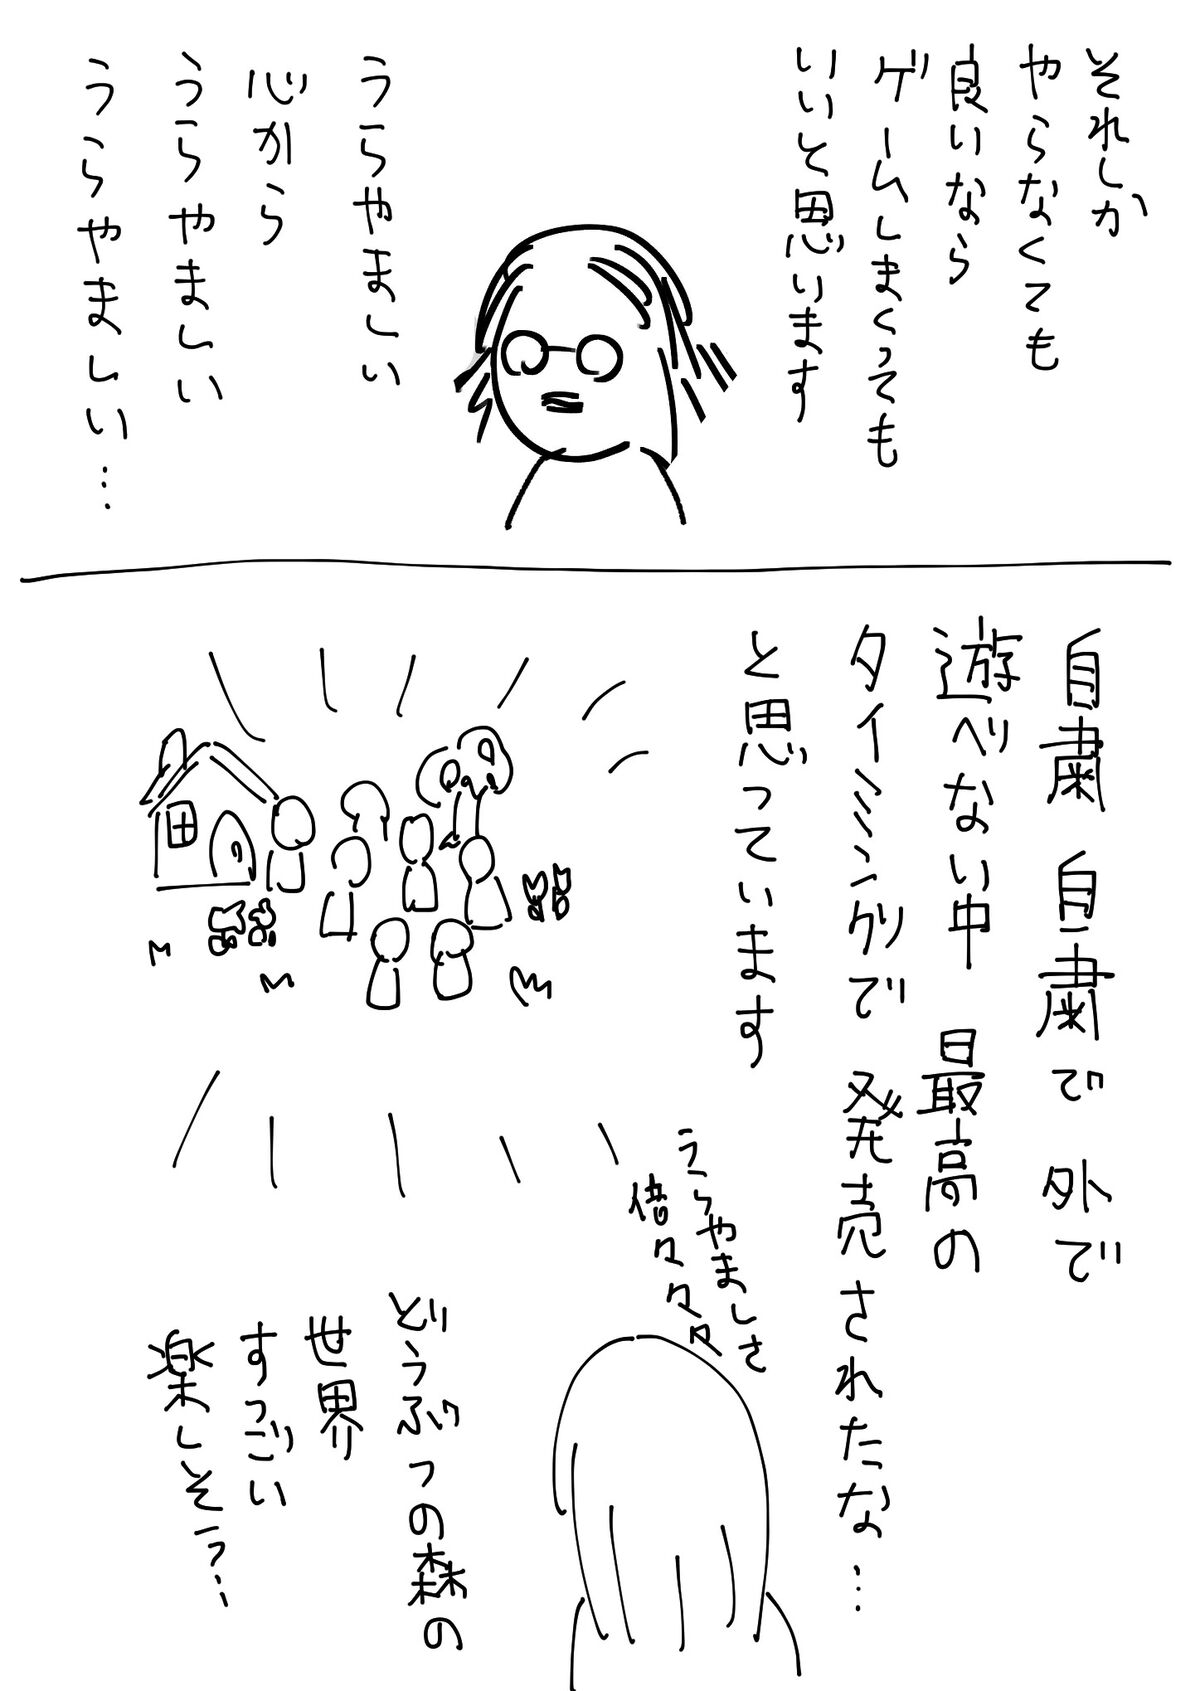 それしか
やらなくても
良いなら
ゲームしまくっても
いいと思います
うらやましい
心から
うらやましい
うらやましい…
自粛 自粛で 外で
遊べない中 最高の
タイミングで 発売されたな…
と思っています
うらやましさ
倍々々々
どうぶつの森の
世界
すっごい
楽しそう?…